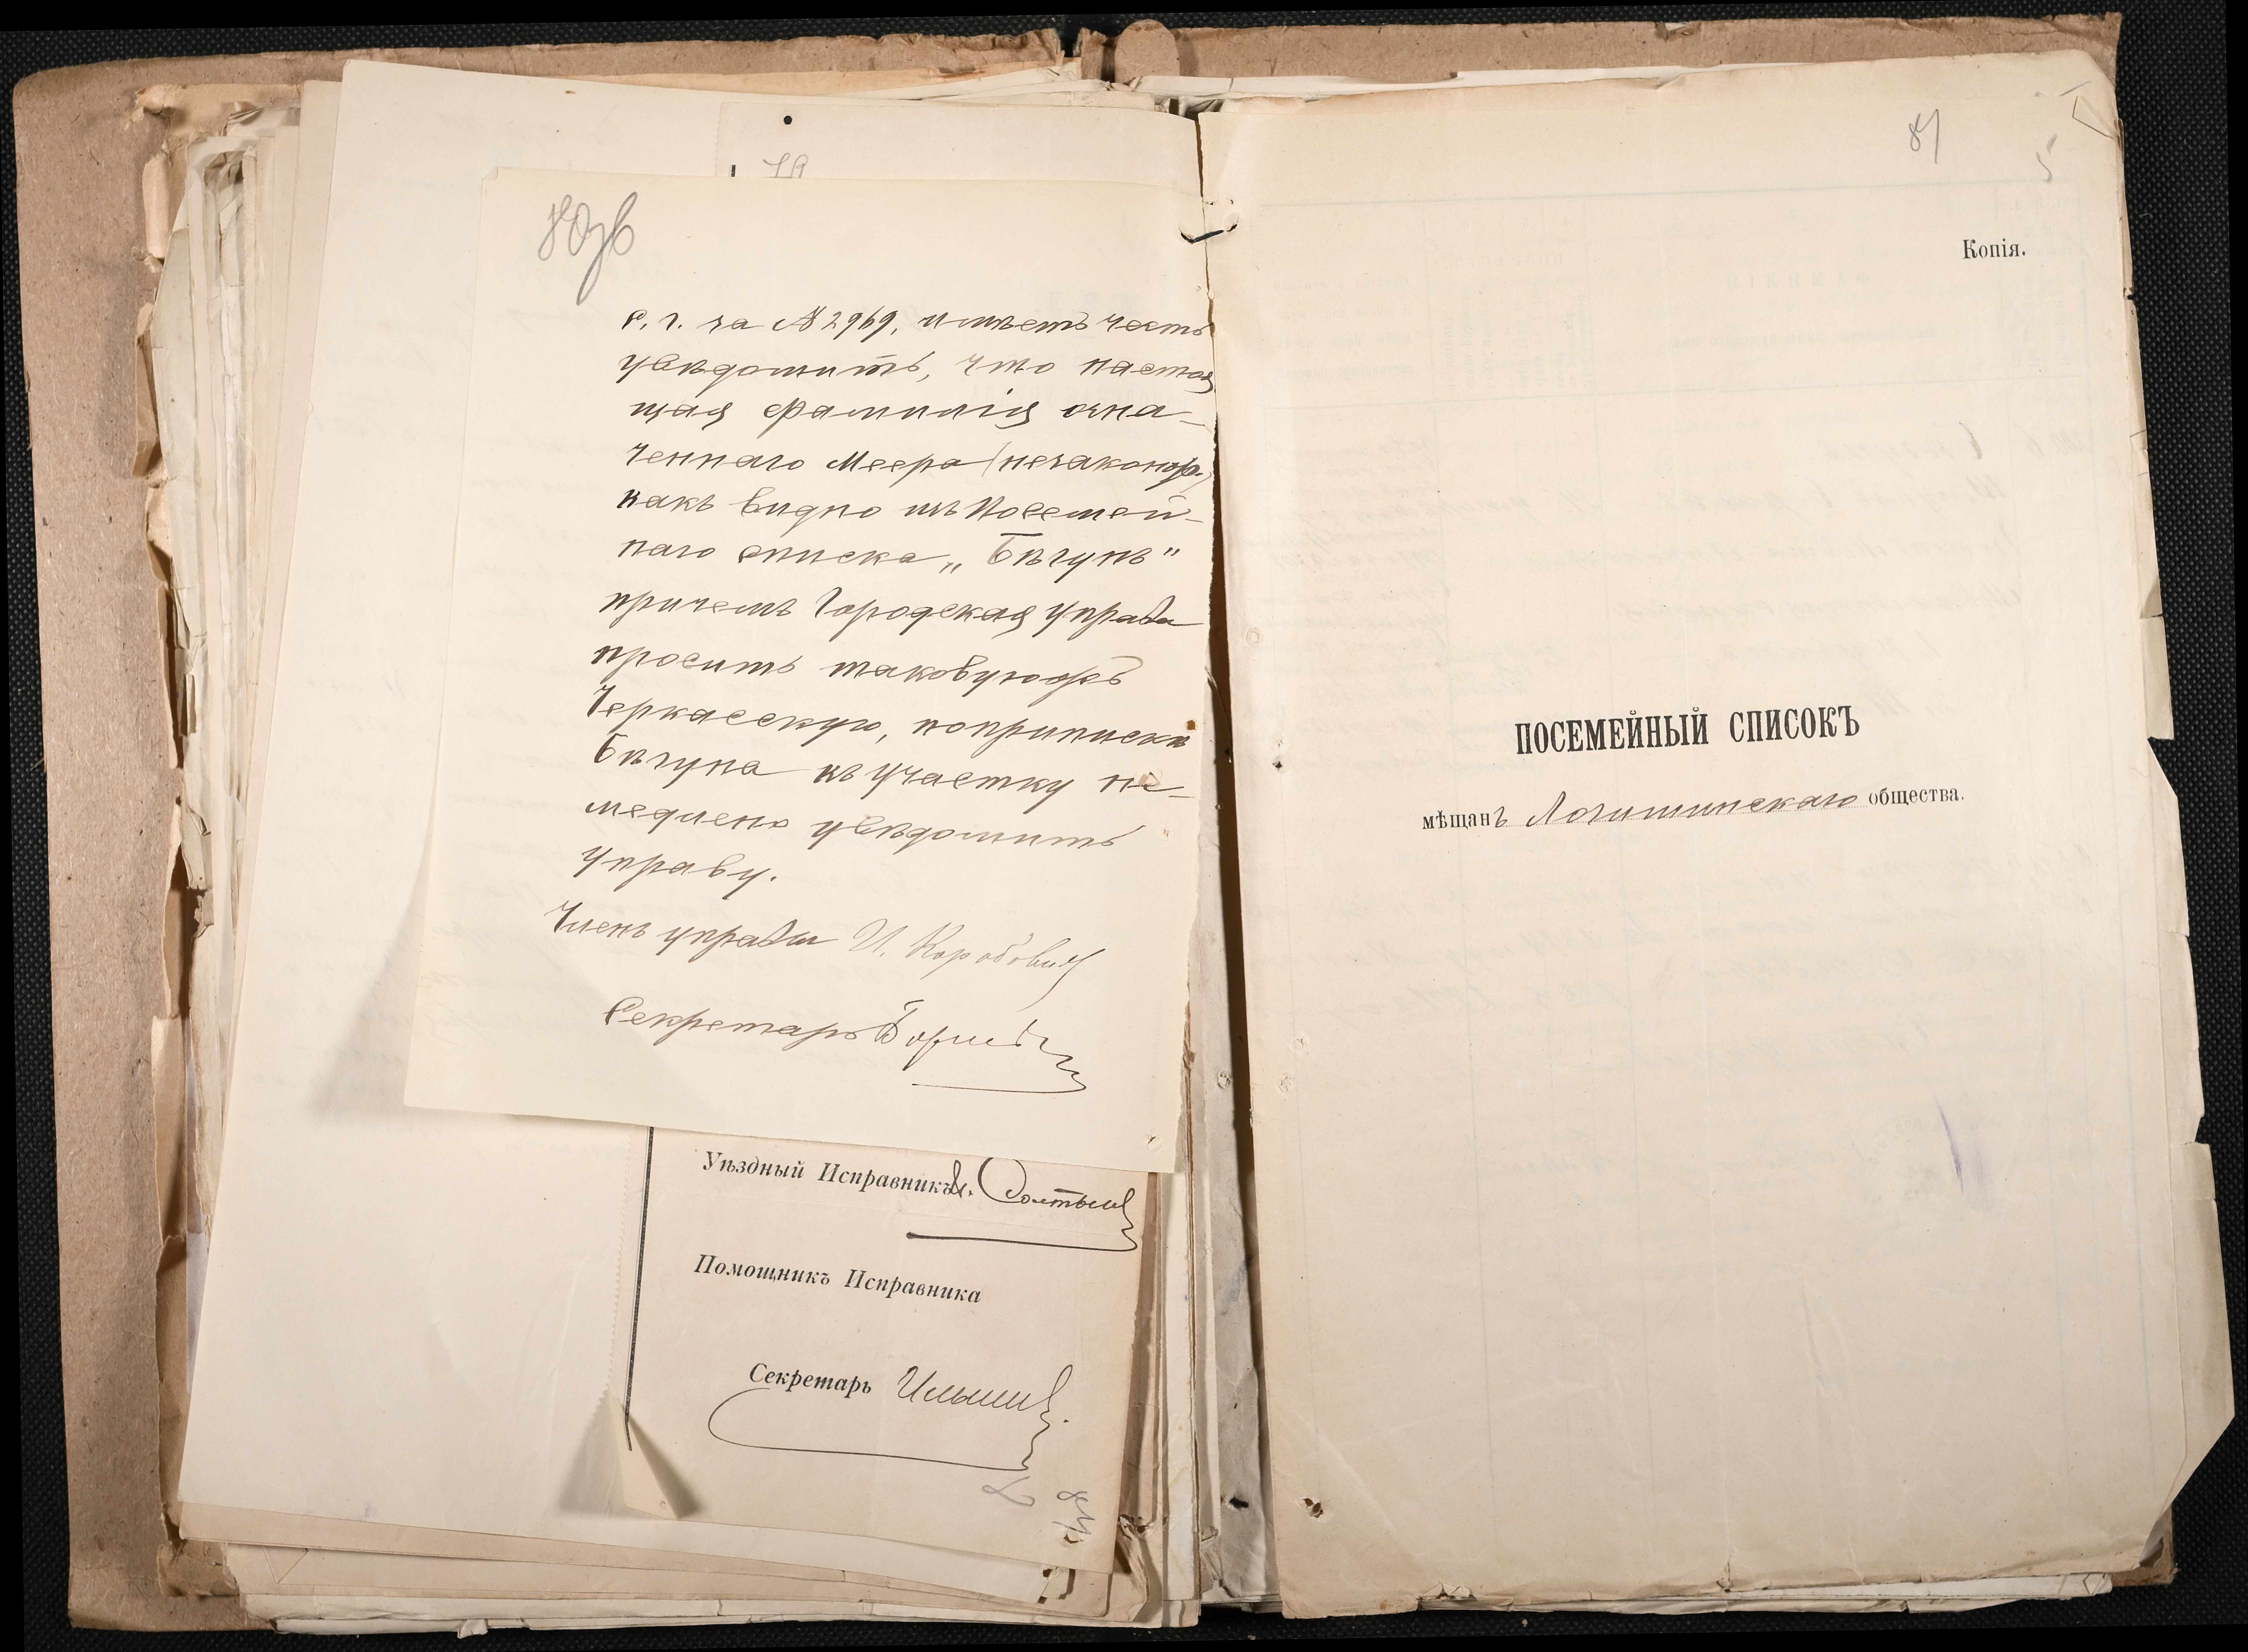 80об
с. г. за № 2969, имѣетъ честь
увѣдомить, что настоя
щая фамилія озна-
ченнаго Меера (незаконор.)
какъ видно изъ Посемей-
наго списка „Бѣгунъ"
причемъ Городская управа
проситъ таковуюжъ
Черкасскую, поприпискѣ
Бѣгуна къ участку не-
медлено увѣдомить
управу.
Членъ управы И. Коробович
Секретарь
Уѣздный Исправникъ
Помощникъ Исправника
Секретарь
Копія.
ПОСЕМЕЙНЫЙ СПИСОКЪ
мѣщанъ Логишинскаго общества.